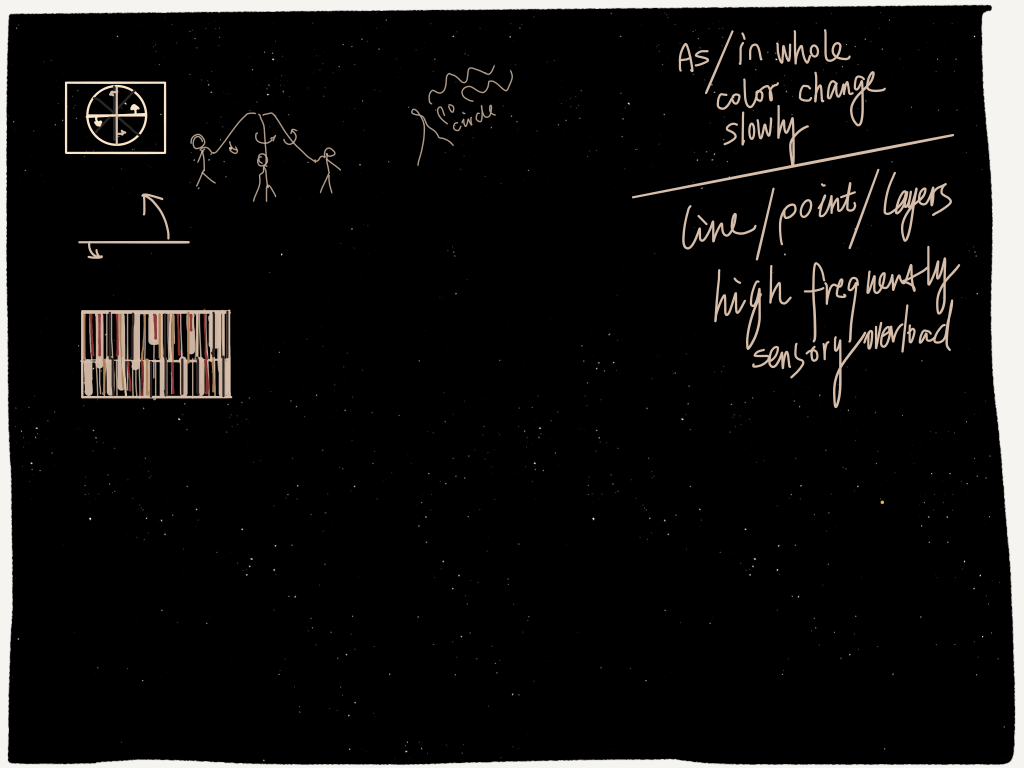 no
circle
As/in whole
color change
slowly
line/point/layers
high frequently
sensory overload